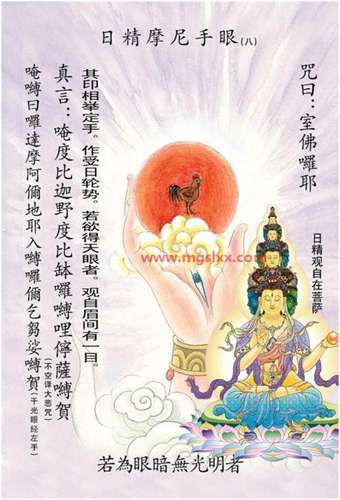 日精摩尼手眼(八)
咒曰：室佛囉耶
日精观自在菩萨
www.mgslxx.com
其印相举定手。作受日轮势。若欲得天眼者。观自眉间有一目。
真言：唵度比迦野度比缽囉嚩哩儜薩嚩賀
(不空译大悲咒)
唵嚩日囉達摩阿爾地耶入嚩囉爾乞芻娑嚩賀
(千光眼经左手)
若為眼暗無光明者